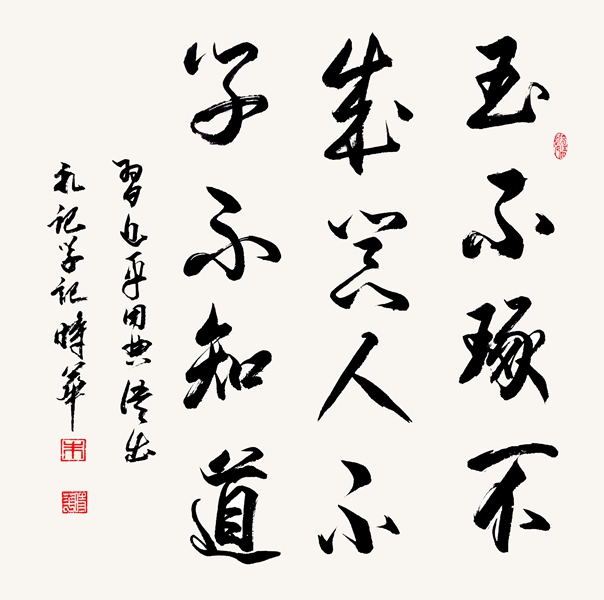 玉不琢不
成器人不
学不知道
習近平用典语出
礼记学记時華